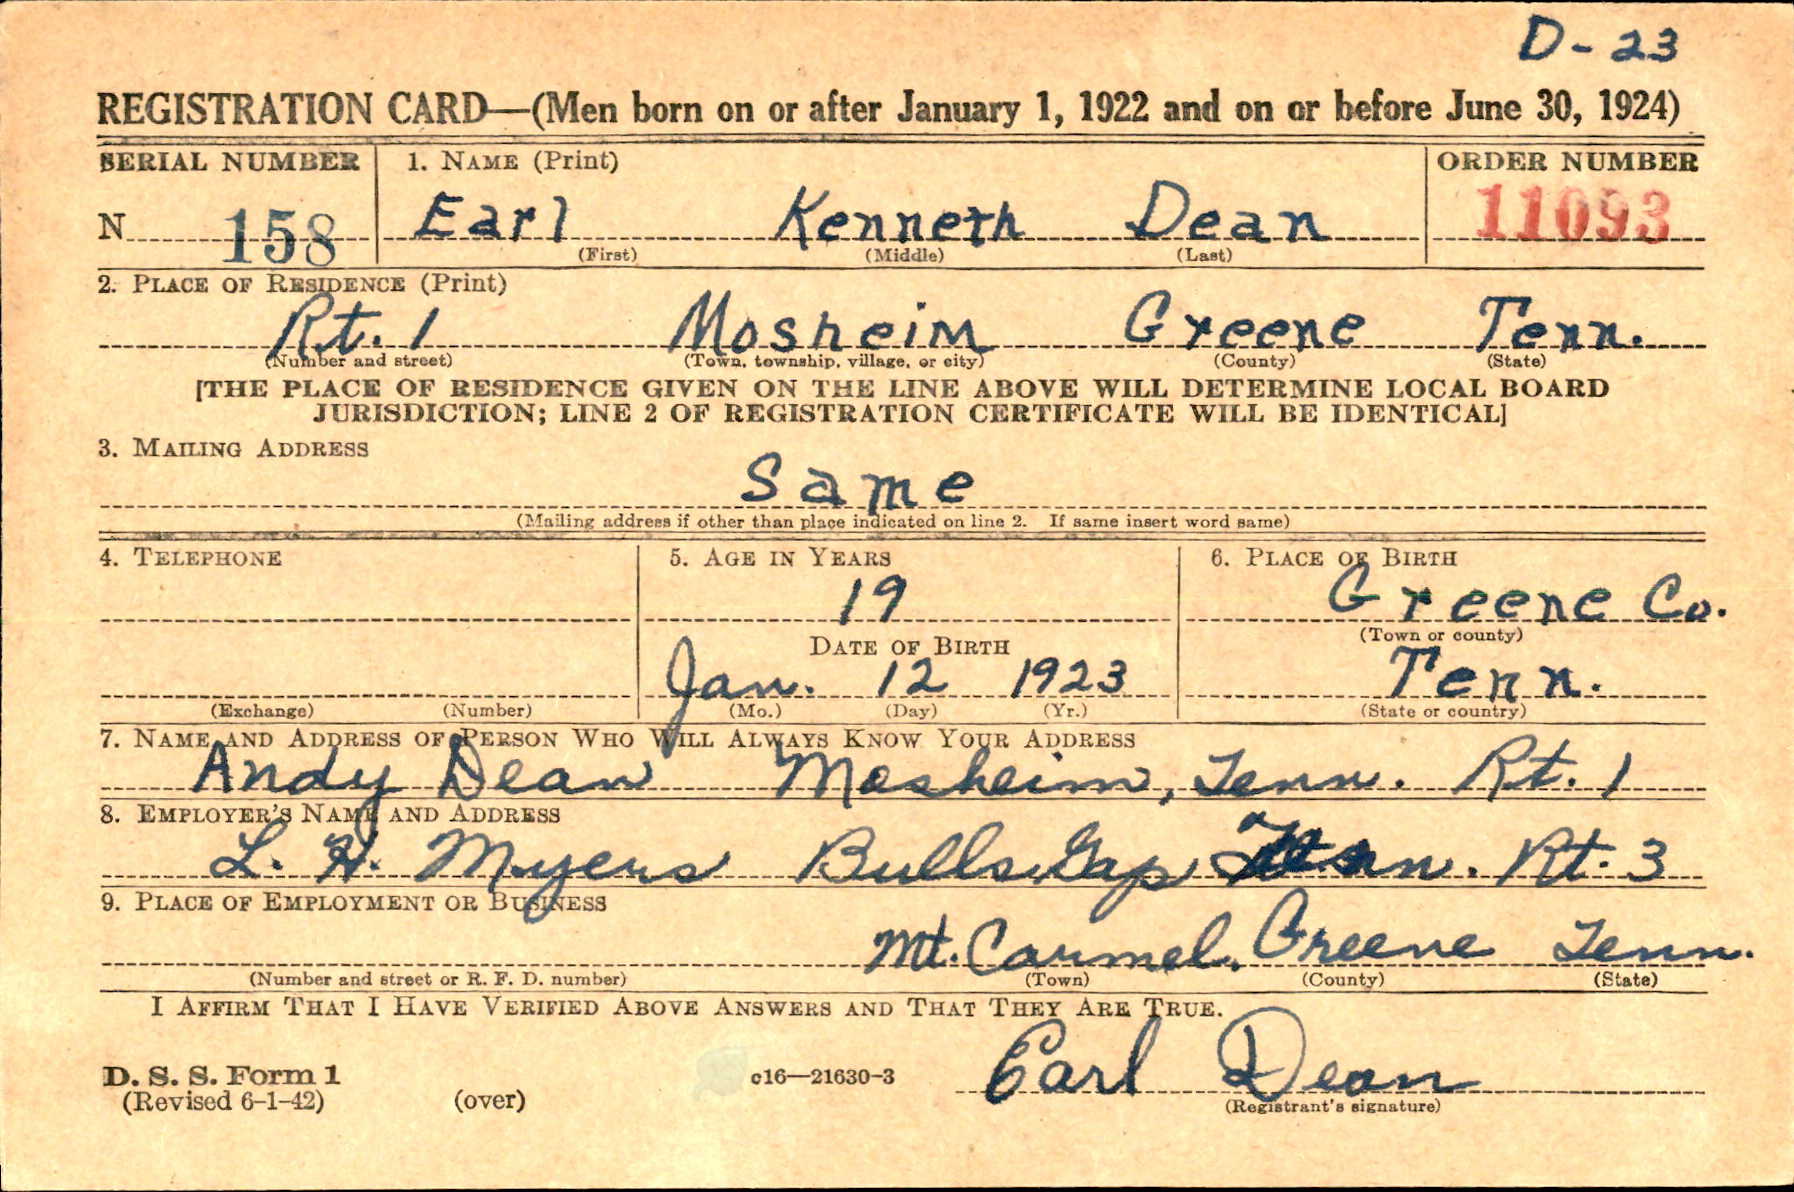 D-23
REGISTRATION CARD—(Men born on or after January 1, 1922 and on or before June 30, 1924)
SERIAL NUMBER 1. NAME (Print) ORDER NUMBER
N 158 Earl Kenneth Dean 11093
(First) (Middle) (Last)
2. PLACE OF RESIDENCE (Print)
Rt. 1 Mosheim Greene Tenn.
(Number and street) (Town, township, village, or city) (County) (State)
[THE PLACE OF RESIDENCE GIVEN ON THE LINE ABOVE WILL DETERMINE LOCAL BOARD
JURISDICTION; LINE 2 OF REGISTRATION CERTIFICATE WILL BE IDENTICAL]
3. MAILING ADDRESS
Same
(Mailing address if other than place indicated on line 2. If same insert word same)
4. TELEPHONE 5. AGE IN YEARS 6. PLACE OF BIRTH
19 Greene Co.
(Town or county)
DATE OF BIRTH
Jan. 12 1923 Tenn.
(Exchange) (Number) (Mo.) (Day) (Yr.) (State or country)
7. NAME AND ADDRESS OF PERSON WHO WILL ALWAYS KNOW YOUR ADDRESS
Andy Dean Mosheim, Tenn. Rt. 1
8. EMPLOYER'S NAME AND ADDRESS
L. H. Myers Bulls Gap Tenn. Rt. 3
9. PLACE OF EMPLOYMENT OR BUSINESS
Mt. Carmel. Greene Tenn.
(Number and street or R. F. D. number) (Town) (County) (State)
I AFFIRM THAT I HAVE VERIFIED ABOVE ANSWERS AND THAT THEY ARE TRUE.
D. S. S. Form 1 c16—21630-3 Earl Dean
(Revised 6-1-42) (over) (Registrant's signature)